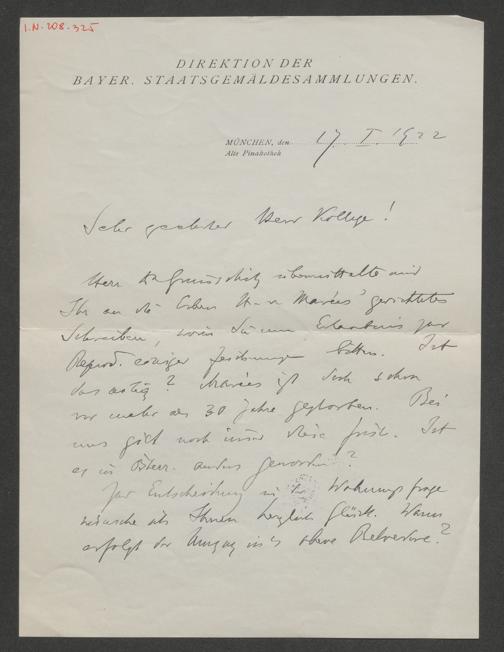 I.N. 208.325
DIREKTION DER
BAYER. STAATSGEMÄLDESAMMLUNGEN.
MÜNCHEN, den 17. I. 1922
Alte Pinakothek
Sehr geehrter Herr Kollege!
Herr Dr Gronschitz übermittelte mir
Ihr an die Erben H. v. Marées' gerichtetes
Schreiben, worin Sie um Erlaubnis zur
Reprod. einiger Zeichnungen bitten. Ist
das nötig? Marées ist doch schon
vor mehr als 30 Jahre gestorben. Bei
uns gilt noch immer diese Frist. Ist
es in Österr. anders geworden?
Zur Entscheidung in der Wohnungsfrage
wünsche ich Ihnen herzlich Glück. Wann
erfolgt der Umzug in's obere Belvedere?